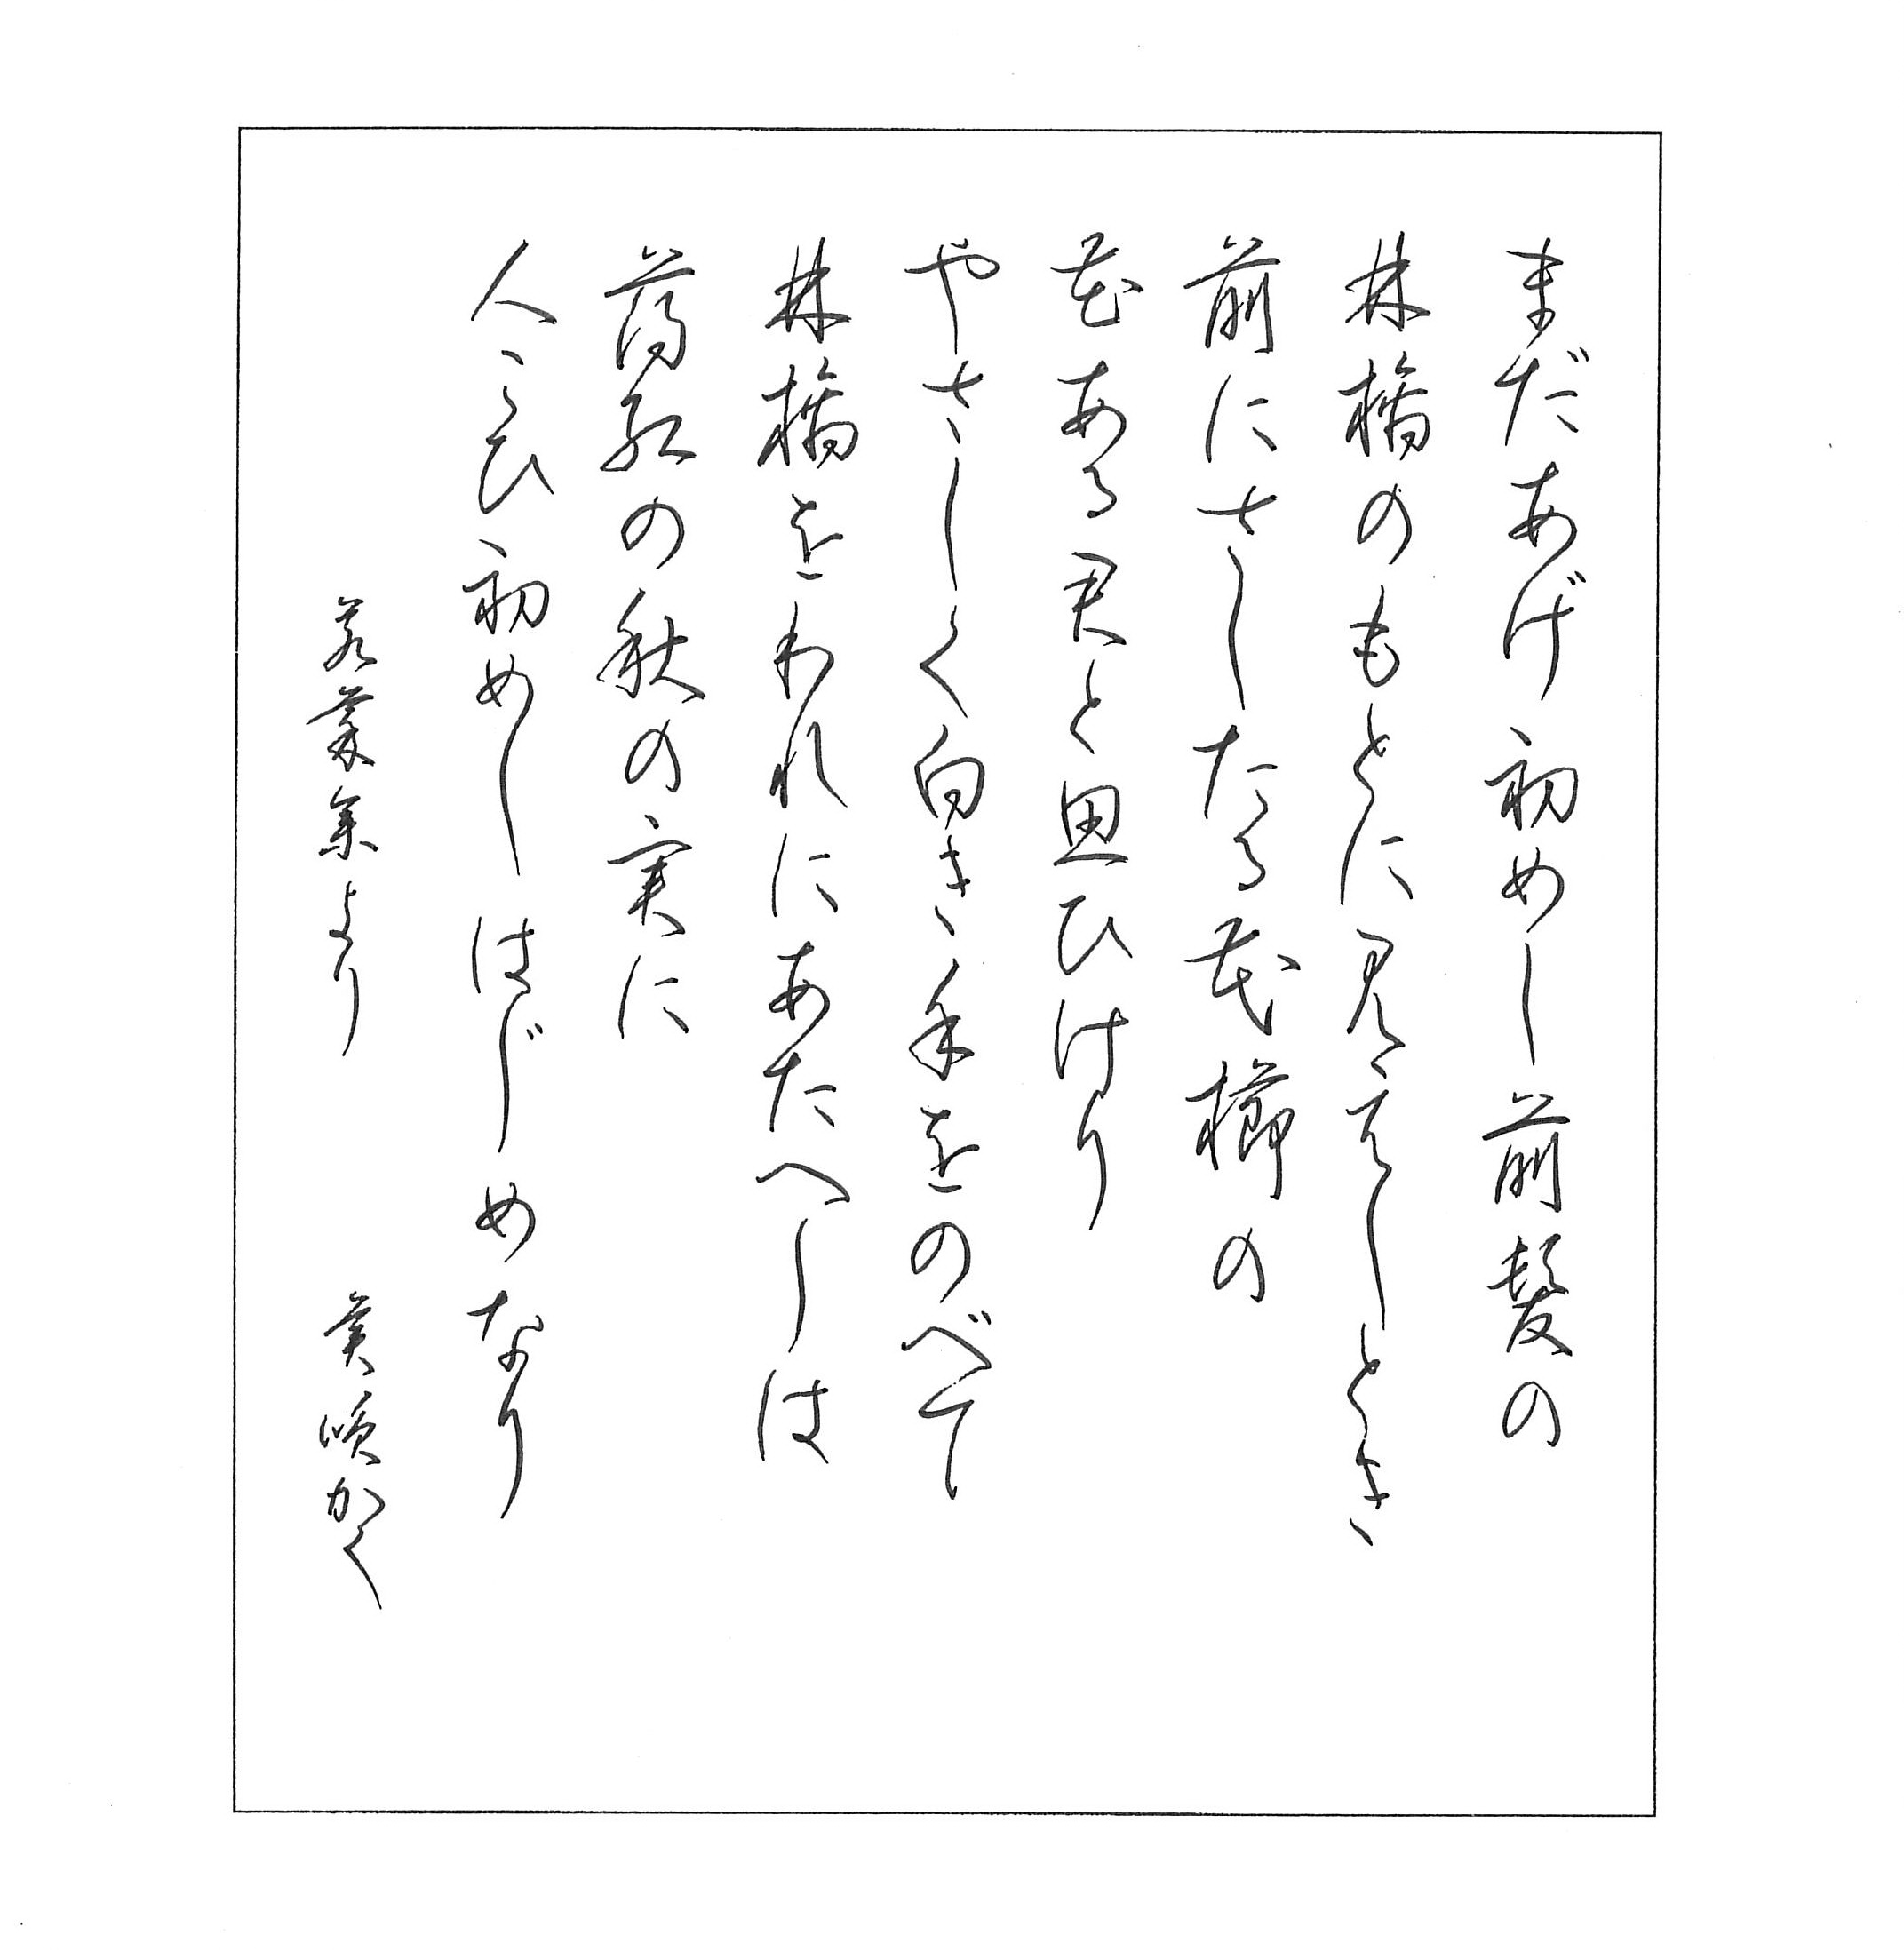 まだあげ初めし前髪の
林檎のもとに見えしとき
前にさしたる花櫛の
花ある君と思ひけり
やさしく白き手をのべて
林檎をわれにあたへしは
薄紅の秋の実に
人こひ初めしはじめなり
若菜集より 美咲かく